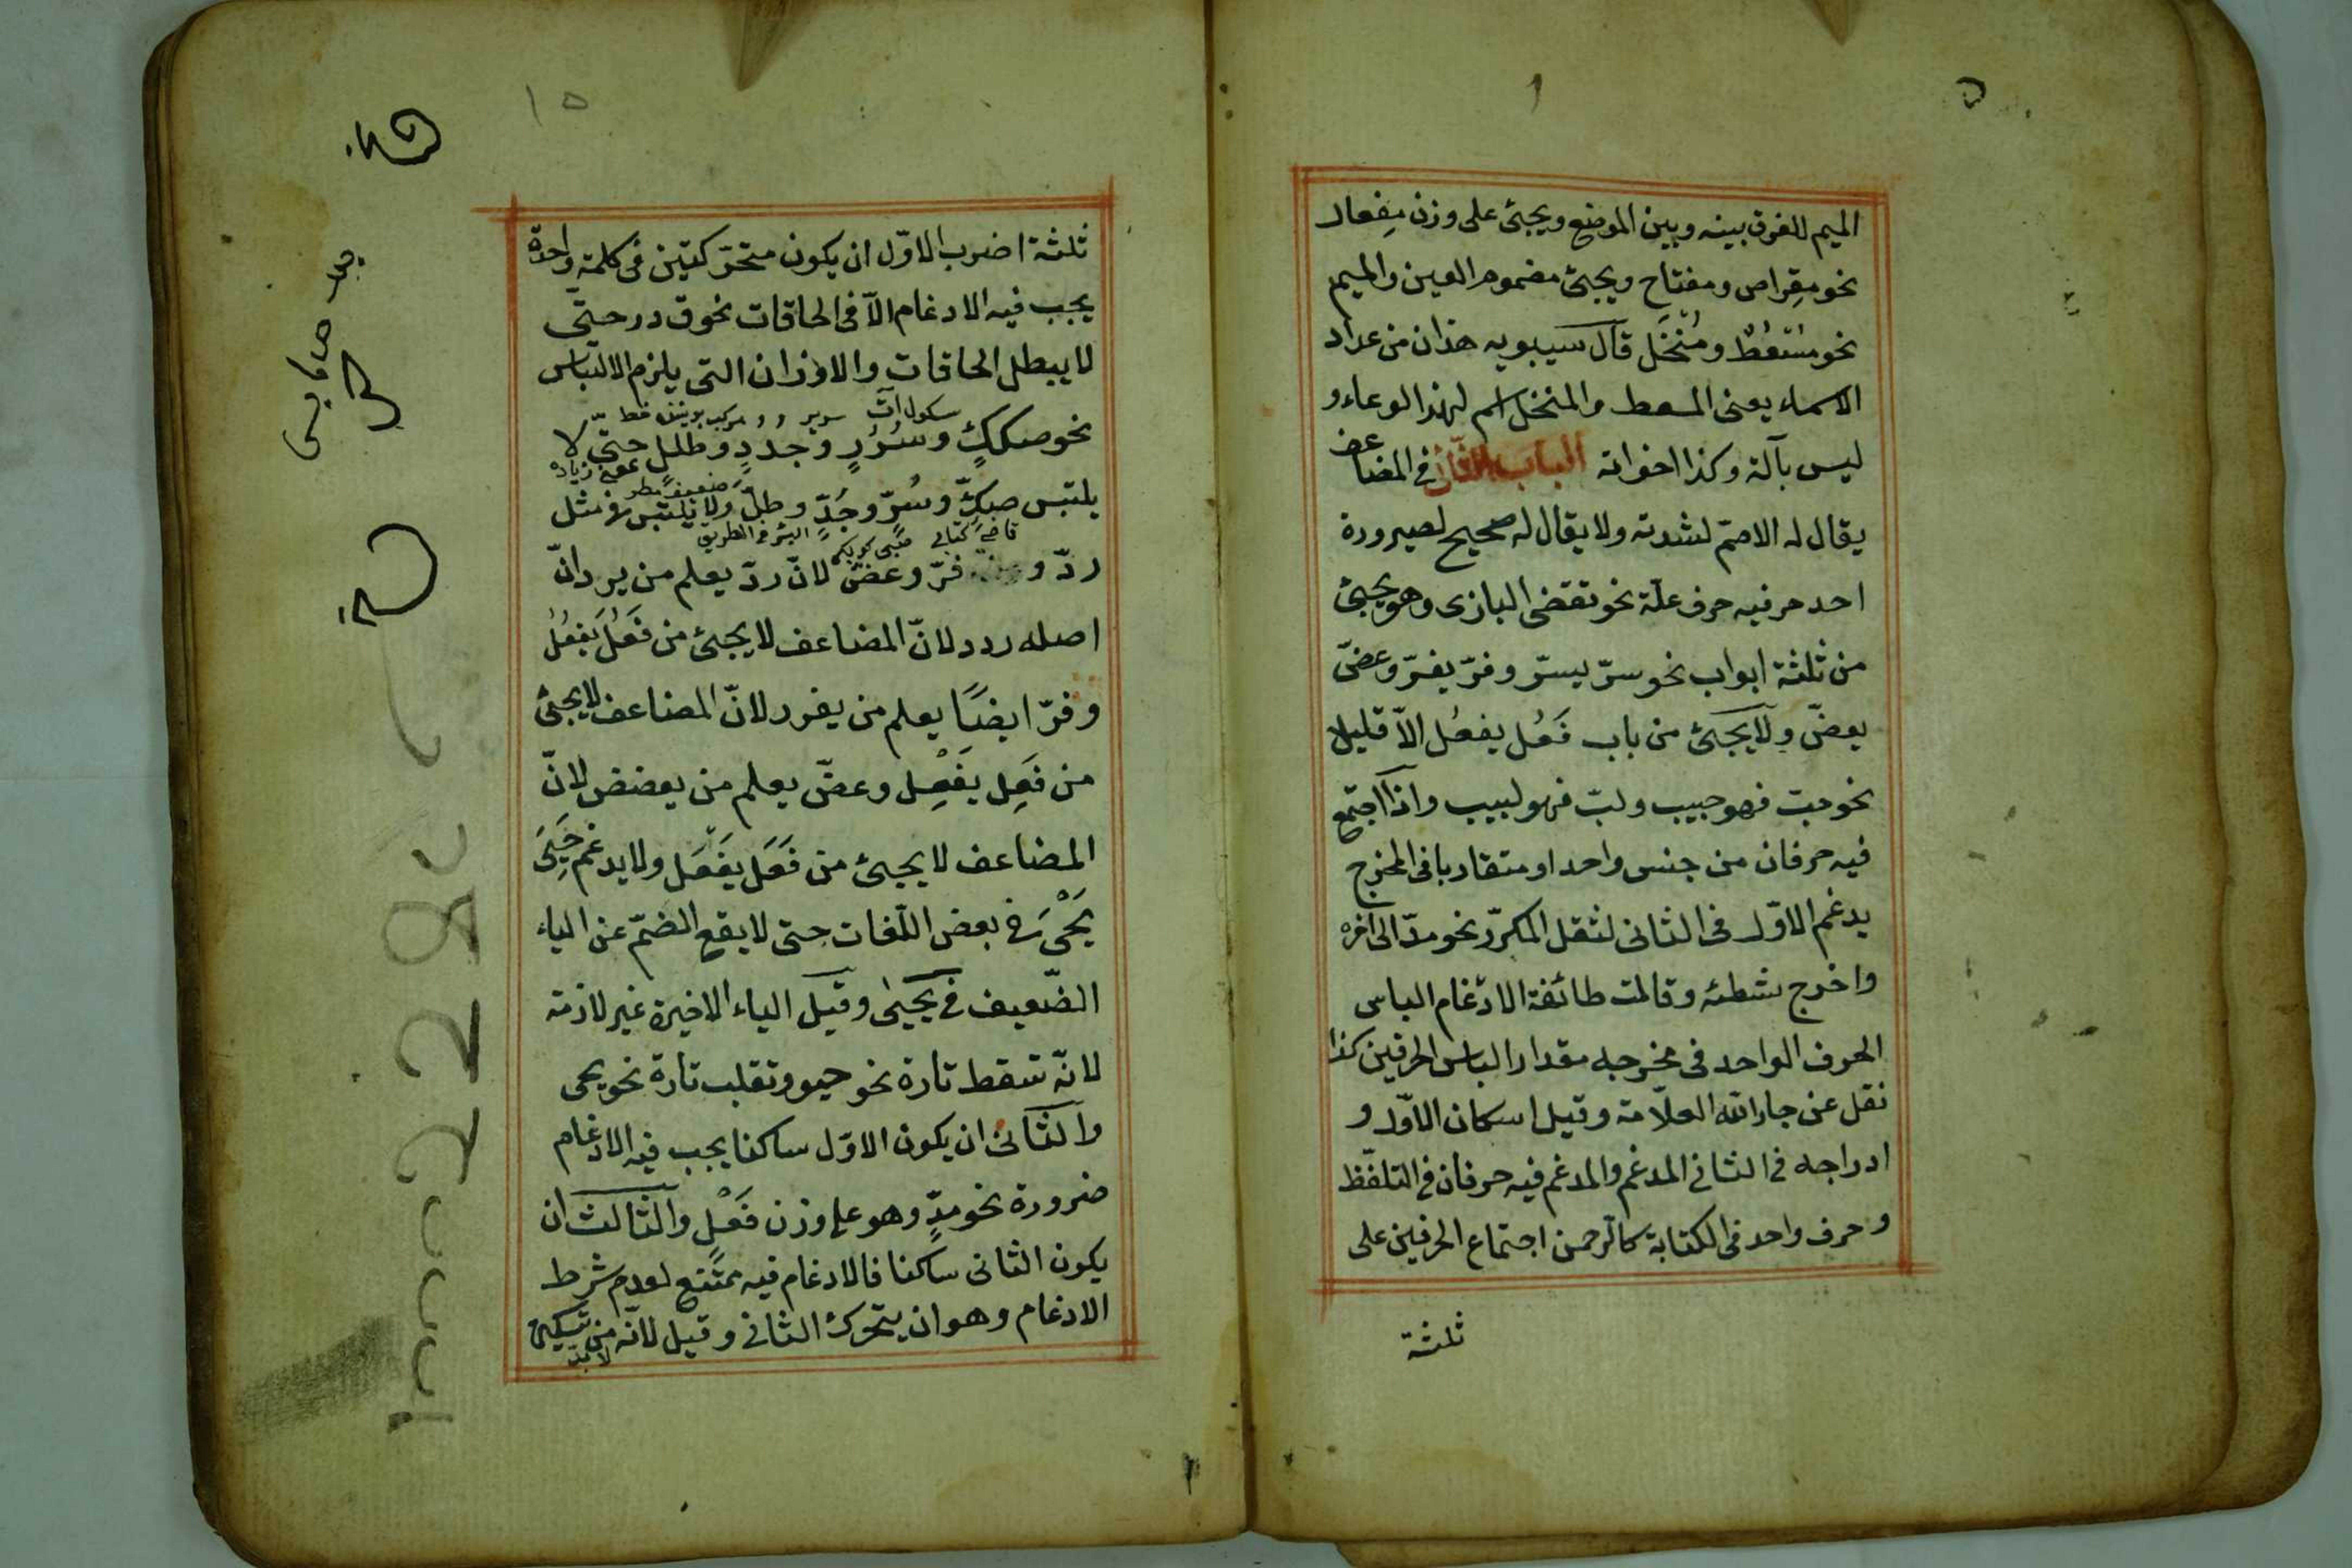 الميم للفرق بينه وبين الموضع ويجئ على وزن مِفعال
نحو مقِراص ومفتاح ويجئ مضموم العين والميم
نحو مُسْعُطٌ ومُنْخَل قال سيبويه هذان من عداد
الاسماء يعنى المسعط والمنخل اسم لهذا الوعاء و
ليس بآلة وكذا اخواته الباب الثانى فى المضاعف
يقال له الاصمّ لشدته ولا يقال له صحيح لصيرورة
احد حرفيه حرف علّة نحو تقضى البازى وهو يجئ
من ثلثة ابواب نحو سرّ يسرّ وفرّ يفرّ وعضّ
يعضّ ولا يجئ من باب فَعُل يفعُل الاّ قليلا
نحو حبّ فهو حبيب ولبّ فهو لبيب واذا اجتمع
فيه حرفان من جنس واحد او متقاربا فى المخرج
يدغم الاوّل فى الثانى لثقل المكرّر نحو مدّ الى آخره
واخرج شطئه وقالت طائفة الادّغام الباس
الحرف الواحد فى مخرجه مقدار الباس الحرفين كذا
نقل عن جار الله العلاّمة وقيل اسكان الاوّل و
ادراجه فى الثانى المدغم والمدغم فيه حرفان فى التلفّظ
وحرف واحد فى الكتابة كالرحمن اجتماع الحرفين على
ثلثة
١٥
ثلثة اضرب الاوّل ان يكون متحرّكتين فى كلمة واحدة
يجب فيه الادغام الاّ فى الحاقات نحو قردد حتّى
لا يبطل الحاقات والاوزان التى يلزم الالتباس
نحو صككٍ وسُرُرٍ وجُدَدٍ وطللٍ حتّى لا
يلتبس صكٍّ وسُرٍّ وجُدٍّ وطلٍّ ولا يلتبس فى مثل
ردّ و فرّ وعضّ لانّ ردّ يعلم من يرد انّ
اصله ردد لانّ المضاعف لا يجئ من فَعُلَ يَفعُلُ
وفرّ ايضًا يعلم من يفرر لانّ المضاعف لا يجئ
من فَعِل يَفْعِل وعضّ يعلم من يعضض لانّ
المضاعف لا يجئ من فَعَل يَفْعَل ولا يدغم حَيِىَ
يَحْىَ فى بعض اللّغات حتى لا يقع الضمّ عن الياء
الضّعيف فى يحيىٰ وقيل الياء الاخيرة غير لازمة
لانّه تسقط تارة نحو حيو وتقلب تارة نحو يحى
والثّانى ان يكون الاوّل ساكنا يجب فيه الادغام
ضرورة نحو مدٍّ وهو على وزن فَعْلٍ والثالث ان
يكون الثانى ساكنا فالادغام فيه ممتنع لعدم شرط
الادغام وهو ان يتحرك الثانى وقيل لانّه لا بدّ من تسكين